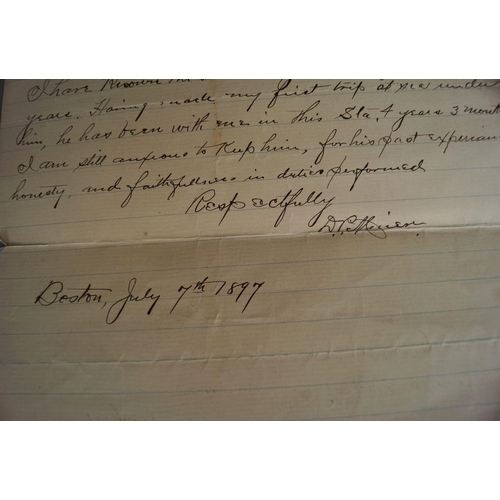 I have known
years. Having made my first trip at sea under
him, he has been with me in this Sta, 4 years 3 month
I am still anxious to Keep him, for his past experian
honesty and faithfullness in duties performed
Respectfully
Boston, July 7th 1897